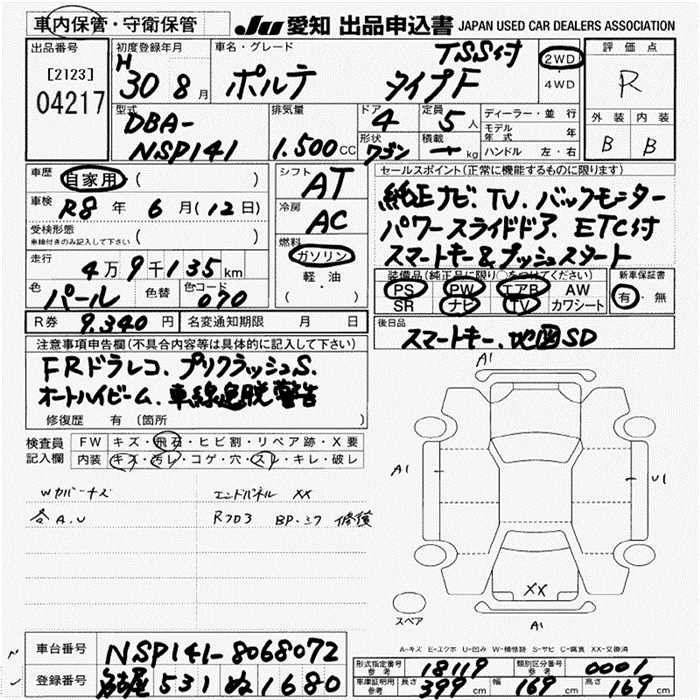 車内保管・守衛保管
JU 愛知 出品申込書 JAPAN USED CAR DEALERS ASSOCIATION
出品番号
[2123]
04217
初度登録年月
H 30 8 月
車名・グレード
ポルテ タイプF TSS付
2WD
4WD
評価点
R
外装 内装
B B
型式
DBA-
NSP141
排気量
1.500 CC
ドア 4
形状 ワゴン
定員 5 人
積載 ー kg
ディーラー・並行
モデル年式 年
ハンドル 左・右
車歴 自家用 ( )
車検 R8 年 6 月 (12日)
受検形態
車検付きのみ記入して下さい ( )
走行 4 万 9 千 135 km
色 パール 色替 色コード 070
R券 9.340 円 名変通知期限 月 日
シフト AT
冷房 AC
燃料
ガソリン
軽油
( )
セールスポイント(正常に機能するものに限ります)
純正ナビ、TV、バックモニター
パワースライドドア、ETC付
スマートキー&プッシュスタート
装備品(純正品に限り○をつけてください)
PS PW エアB AW
SR ナビ TV カワシート
新車保証書
有・無
後日品
スマートキー、地図SD
注意事項申告欄(不具合内容等は具体的に記入して下さい)
FRドラレコ、プリクラッシュS、
オートハイビーム、車線逸脱警告
修復歴 有 (箇所 )
検査員記入欄
FW キズ・飛石・ヒビ割・リペア跡・X要
内装 キズ・汚レ・コゲ・穴・スレ・キレ・破レ
Wカバーキズ
各A.U
エンドパネル XX
Rフロア BP・ミク 修復
A1
A1
U1
XX
A1
スペア
A-キズ E-エクボ U-凹み W-補修跡 S-サビ C-腐食 XX-交換済
車台番号 NSP141-8068072
登録番号 名古屋 531 ぬ 1680
形式指定番号 参考 18119 類別区分番号 参考 0001
車庫証明用 参考 長さ 399 cm 幅 169 cm 高さ 169 cm